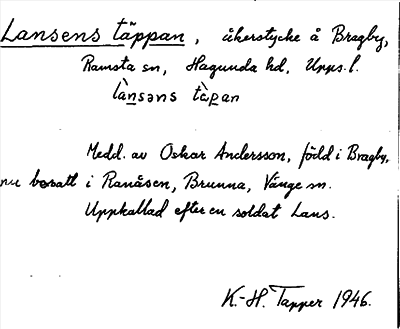 Lansens täppan, åkerstycke å Bragby,
Ramsta sn, Hagunda hd, Upps. l.
lànsəns tàpan
Medd. av Oskar Andersson, född i Bragby,
nu bosatt i Ranåsen, Brunna, Vänge sn.
Uppkallad efter en soldat Lans.
K.-H. Tapper 1946.